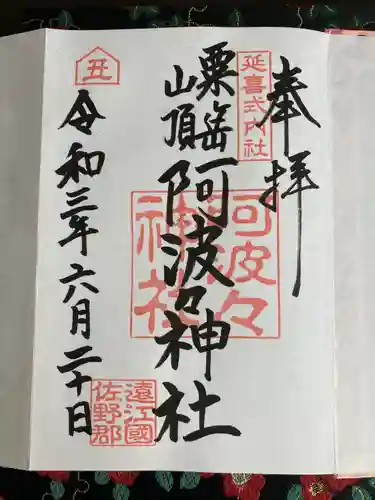 奉拝
延喜式内社
粟𡵅山頂
阿波々神社
阿波々神社
令和三年六月二十日
丑
遠江國
佐野郡